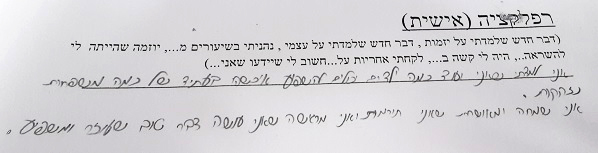 רפלקציה (אישית)
(דבר חדש שלמדתי על יזמות , דבר חדש שלמדתי על עצמי , נהניתי בשיעורים מ..., יוזמה שהייתה לי
להשראה.., היה לי קשה ב..., לקחתי אחריות על...חשוב לי שיידעו שאני...)
אני למדתי שאני ועוד כמה ילדים יכולים להשפיע איכשהו בעתיד של כמה משפחות
נזקקות.
אני שמחה ומאושרת שאני תורמת ואני מרגישה שאני עושה דבר טוב שעוזר ומשפיע.